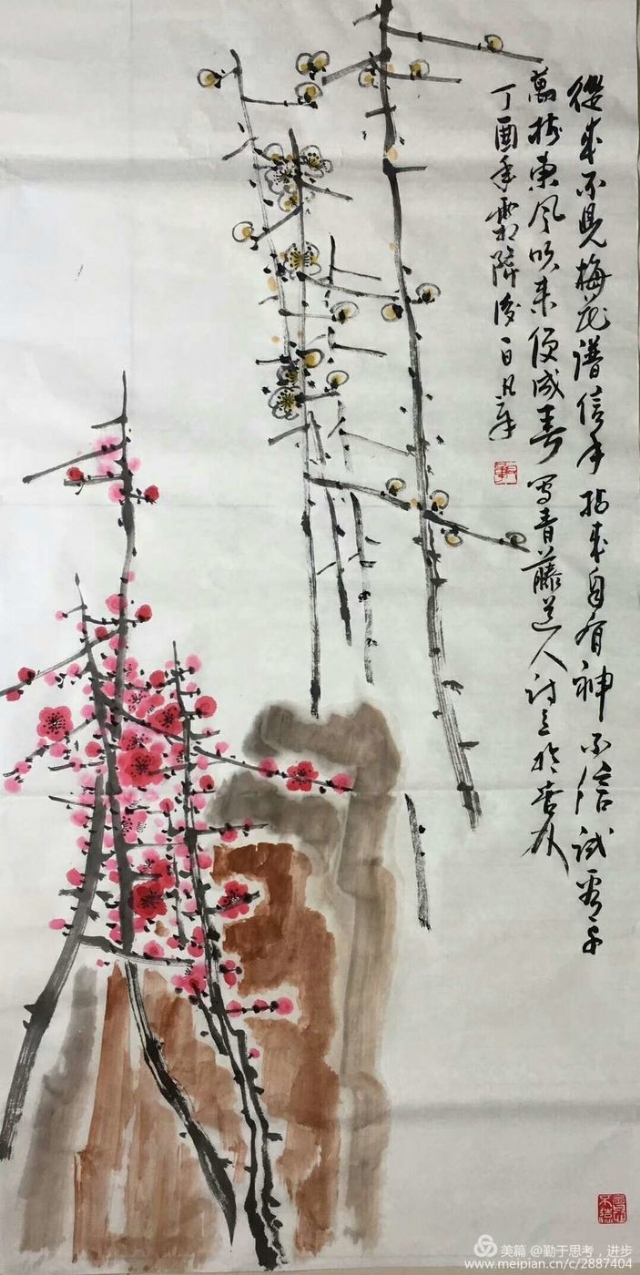 從来不見梅花譜信手拈来自有神不信試看千
萬樹東風吹来便成春 写青藤道人詩意於
丁酉年霜降後一日凡
美篇 @勤于思考,进步
www.meipian.cn/c/2887404